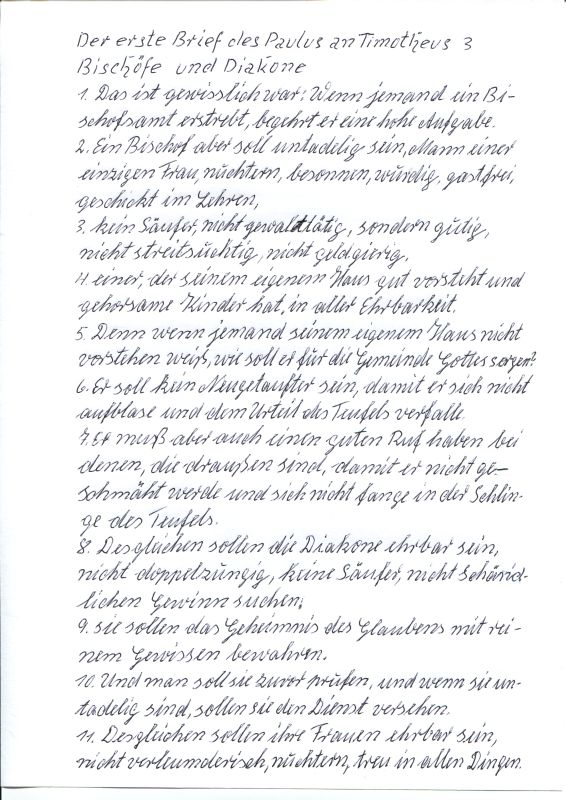 Der erste Brief des Paulus an Timotheus 3
Bischöfe und Diakone
1. Das ist gewisslich war: Wenn jemand ein Bi-
schofsamt erstrebt, begehrt er eine hohe Aufgabe.
2. Ein Bischof aber soll untadelig sein, Mann einer
einzigen Frau, nüchtern, besonnen, würdig, gastfrei,
geschickt im Lehren,
3. kein Säufer, nicht gewalttätig, sondern gütig,
nicht streitsüchtig, nicht geldgierig,
4. einer, der seinem eigenem Haus gut vorsteht und
gehorsame Kinder hat, in aller Ehrbarkeit.
5. Denn wenn jemand seinem eigenem Haus nicht
vorstehen weiß, wie soll er für die Gemeinde Gottes sorgen?
6. Er soll kein Neugetaufter sein, damit er sich nicht
aufblase und dem Urteil des Teufels verfalle.
7. Er muß aber auch einen guten Ruf haben bei
denen, die draußen sind, damit er nicht ge-
schmäht werde und sich nicht fange in der Schlin-
ge des Teufels.
8. Desgleichen sollen die Diakone ehrbar sein,
nicht doppelzüngig, keine Säufer, nicht schänd-
lichen Gewinn suchen;
9. sie sollen das Geheimnis des Glaubens mit rei-
nem Gewissen bewahren.
10. Und man soll sie zuvor prüfen, und wenn sie un-
tadelig sind, sollen sie den Dienst versehen.
11. Desgleichen sollen ihre Frauen ehrbar sein,
nicht verleumderisch, nüchtern, treu in allen Dingen.